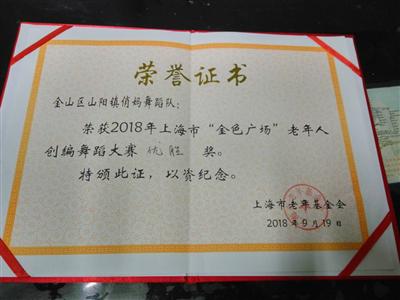 荣誉证书
金山区山阳镇俏妈舞蹈队：
荣获2018年上海市“金色广场”老年人
创编舞蹈大赛 优胜 奖。
特颁此证，以资纪念。
上海市老年基金会
2018年9月19日